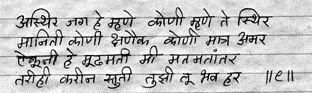 अस्थिर जग हे म्हणे कोणी म्हणे ते स्थिर
मानिती कोणी क्षणैक कोणी मात्र अमर
ऐकूनी हे मूढमती मी मतमतांतर
तरीही करीन स्तुती तुझी तू भव हर ॥९॥